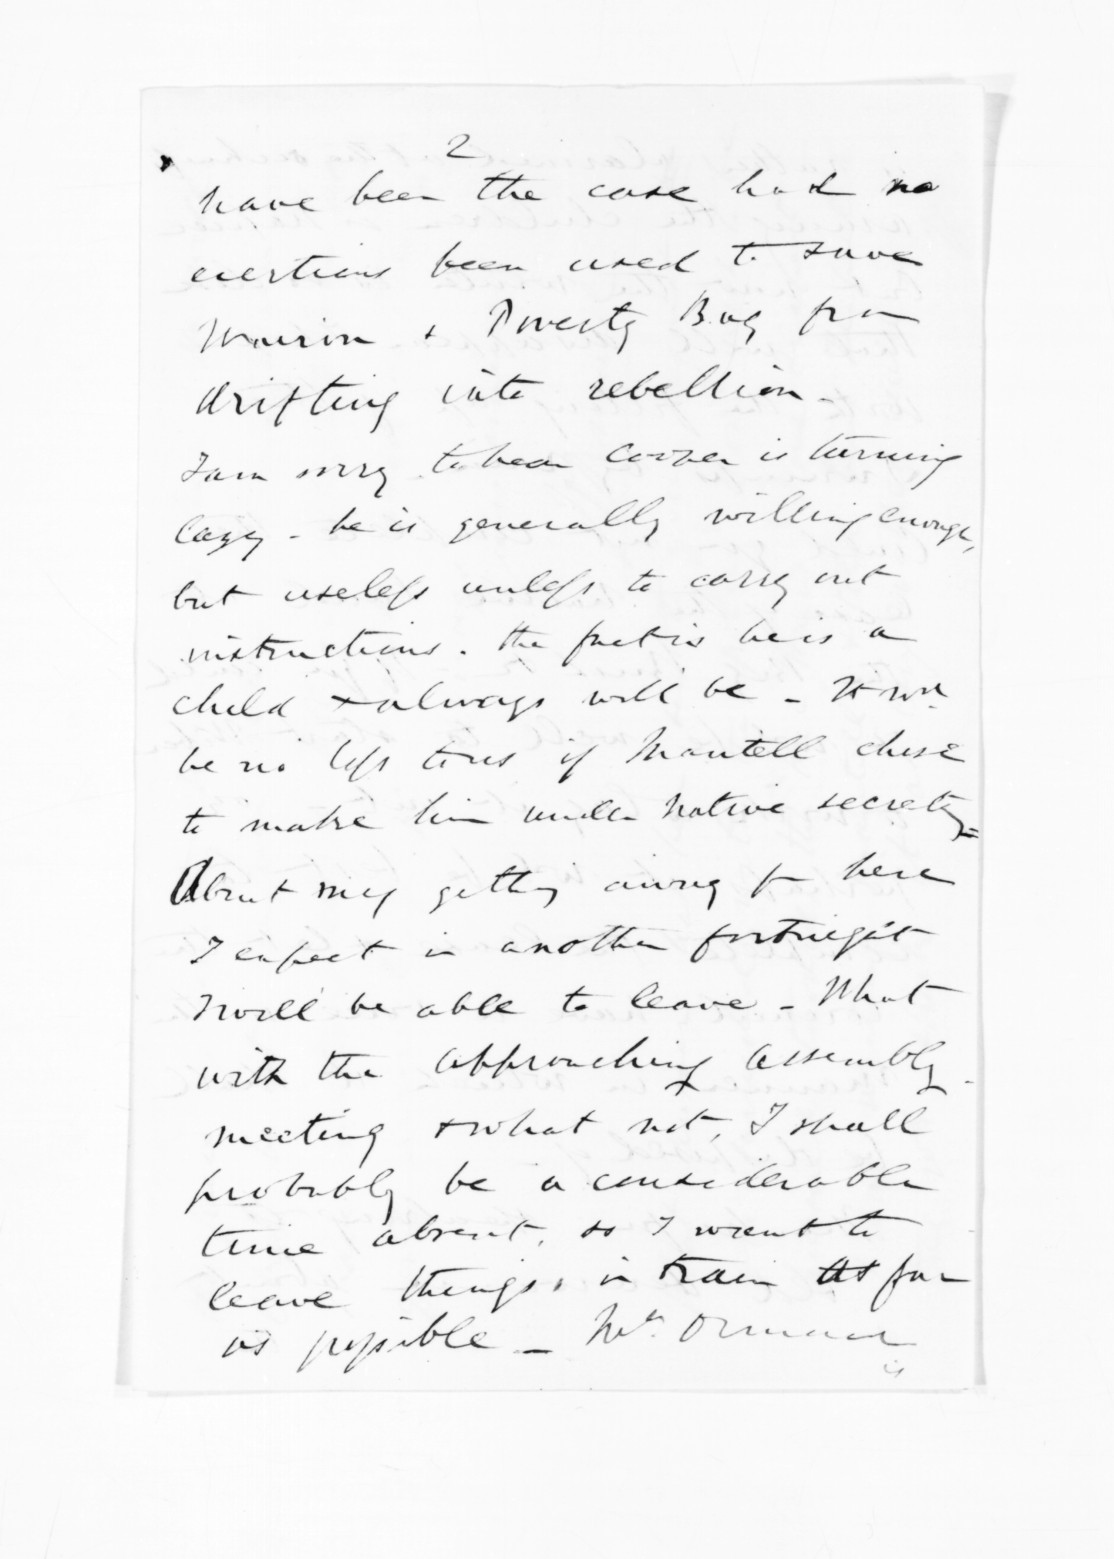 2
have been the case had no
exertions been used to save
Wairoa & Poverty Bay from
drifting into rebellion -
I am sorry to hear Cooper is turning
lazy - he is generally willing enough,
but useless unless to carry out
instructions. the fact is he is a
child & always will be - It wd.
be no loss to us if Mantell chose
to make him under native secrety =
About my getting away fm here
I expect in another fortnight
I will be able to leave - What
with the approaching assembly
meeting & what not, I shall
probably be a considerable
time absent, so I want to
leave things, in train as far
as possible - Mr. Ormond
is